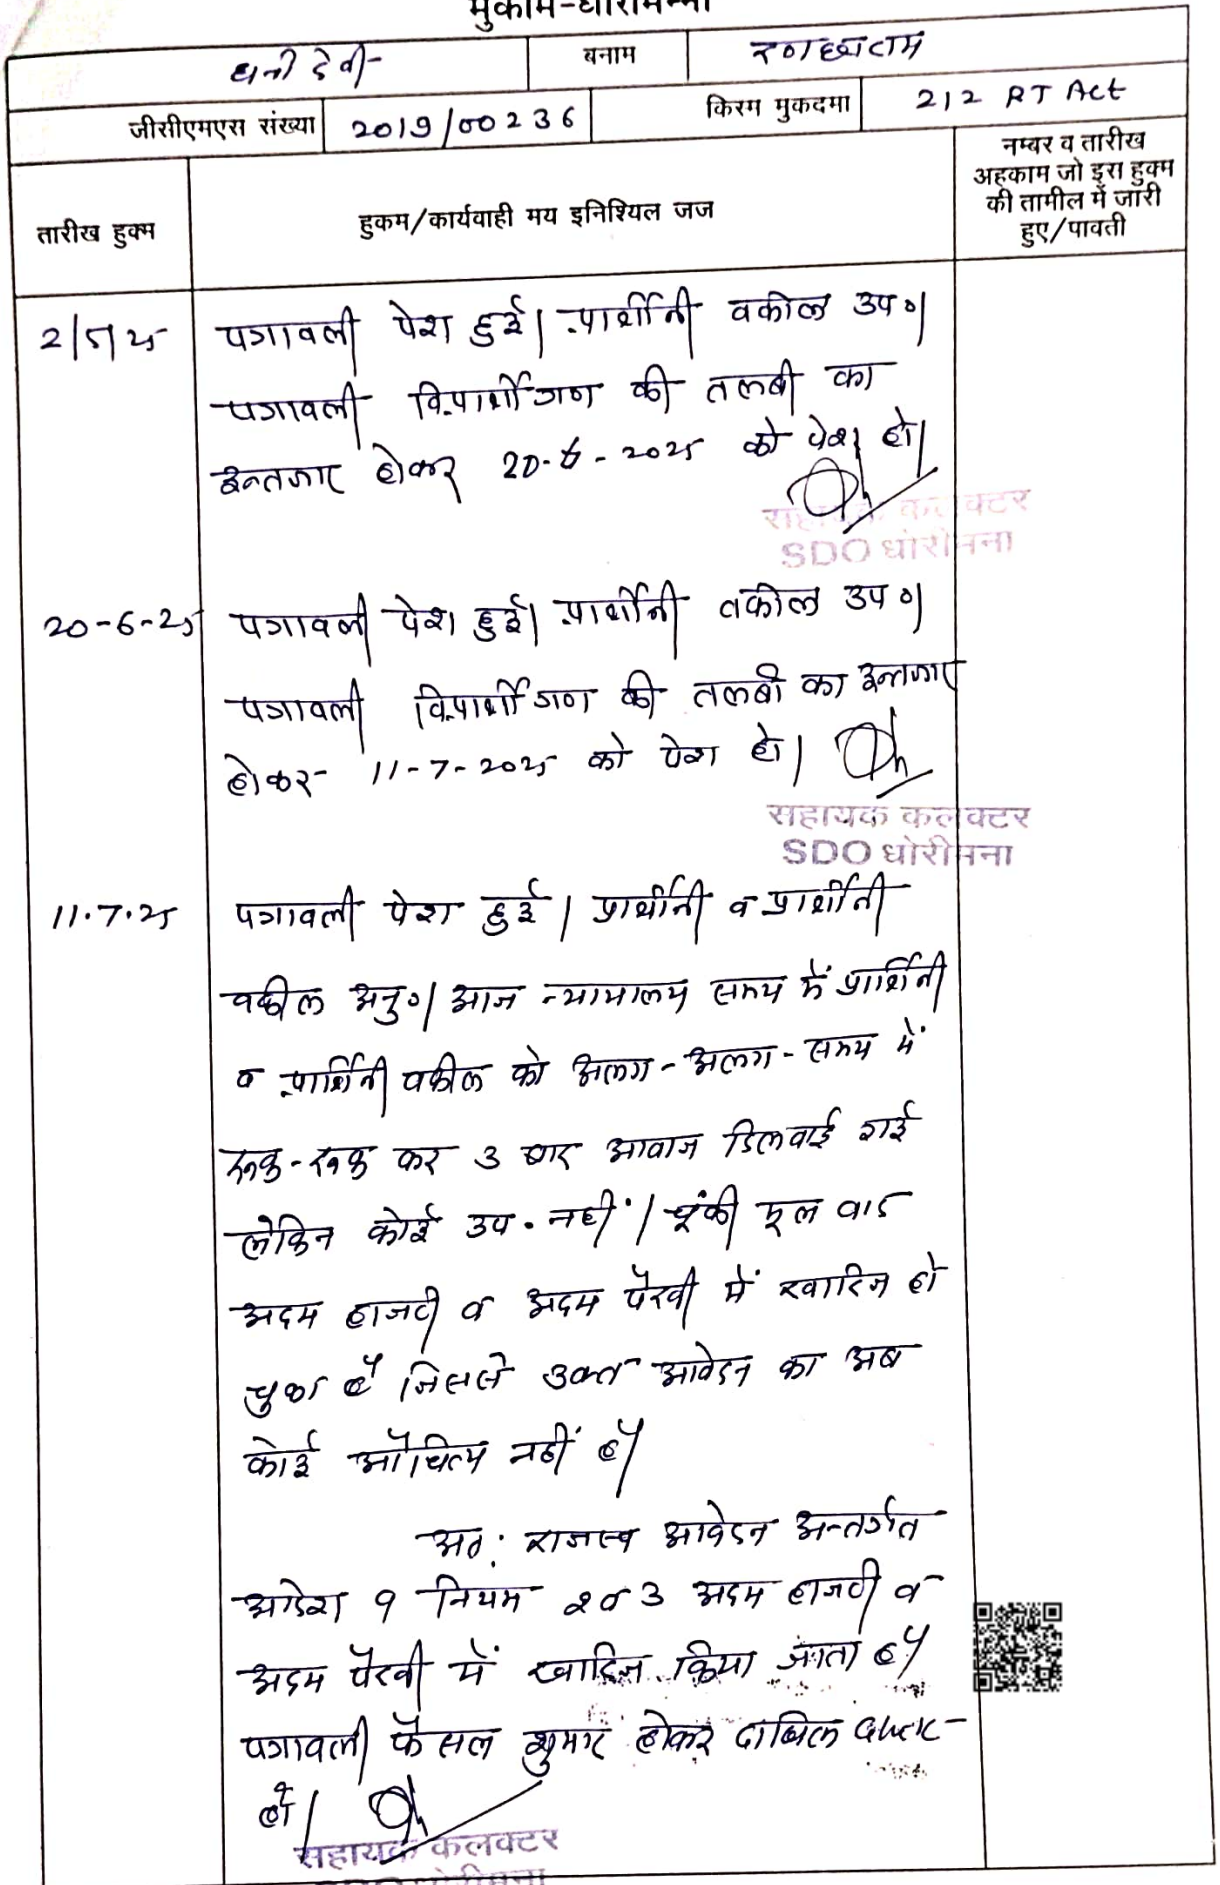 मुकाम-धोरीमन्ना
धनी देवी बनाम रणछाराम
जीसीएमएस संख्या 2019/00236 किस्म मुकदमा 212 RT Act
तारीख हुक्म
हुकम/कार्यवाही मय इनिश्यिल जज
नम्बर व तारीख
अहकाम जो इस हुक्म
की तामील में जारी
हुए/पावती
2/5/25 पत्रावली पेश हुई। प्रार्थीनी वकील उप०।
पत्रावली विप्रार्थीगण की तलबी का
इन्तजार होकर 20-6-2025 को पेश हो।
सहायक कलक्टर
SDO धोरीमना
20-6-25 पत्रावली पेश हुई। प्रार्थीनी वकील उप०।
पत्रावली विप्रार्थीगण की तलबी का इन्तजार
होकर 11-7-2025 को पेश हो।
सहायक कलक्टर
SDO धोरीमना
11.7.25 पत्रावली पेश हुई। प्रार्थीनी व प्रार्थीनी
वकील अनु०। आज न्यायालय समय में प्रार्थिनी
व प्रार्थिनी वकील को अलग-अलग-समय में
रूक-रूक कर 3 बार आवाज दिलवाई गई
लेकिन कोई उप. नहीं। चूंकी मूल वाद
अदम हाजरी व अदम पैरवी में खारिज हो
चुका है जिससे उक्त आवेदन का अब
कोई औचित्य नहीं है।
अत: राजस्व आवेदन अन्तर्गत
आदेश 9 नियम 2 व 3 अदम हाजरी व
अदम पैरवी में खारिज किया जाता है।
पत्रावली फैसल शुमार होकर दाखिल दफ्तर
हो।
सहायक कलक्टर
SDO धोरीमना